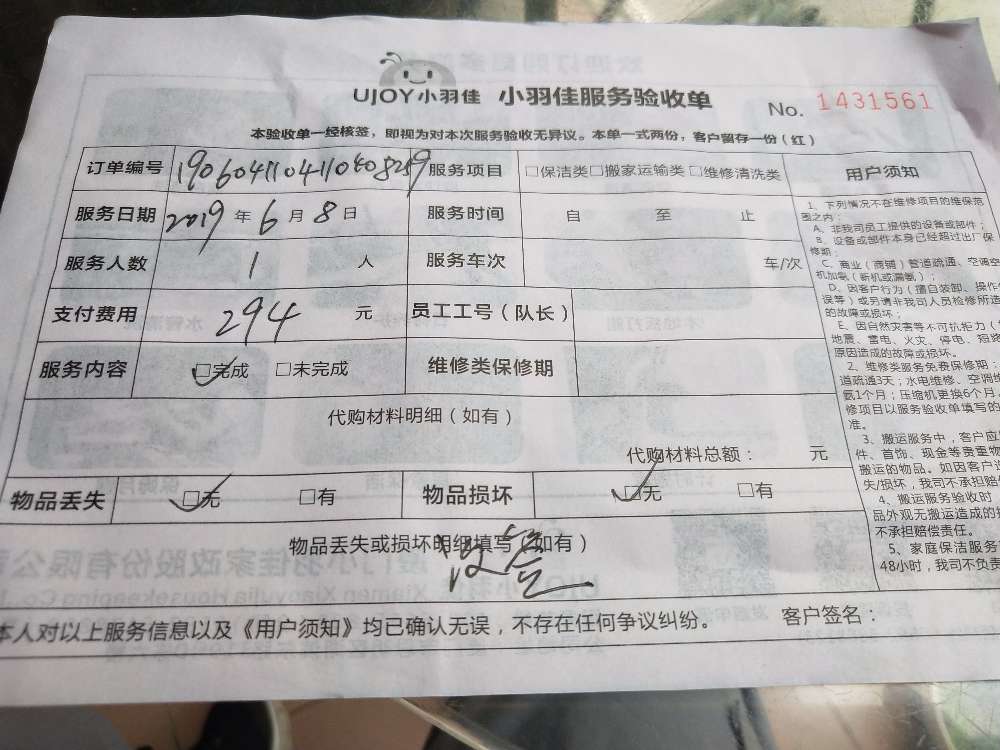 UJOY小羽佳 小羽佳服务验收单 No. 1431561
本验收单一经核签，即视为对本次服务验收无异议。本单一式两份，客户留存一份（红）
订单编号 服务项目 □保洁类□搬家运输类□维修清洗类
服务日期 2019年6月8日 服务时间 自 至 止
服务人数 1 人 服务车次 车/次
支付费用 294 元 员工工号（队长）
服务内容 □完成 □未完成 维修类保修期
代购材料明细（如有）
代购材料总额： 元
物品丢失 □无 □有 物品损坏 □无 □有
物品丢失或损坏明细填写（如有）
本人对以上服务信息以及《用户须知》均已确认无误，不存在任何争议纠纷。 客户签名：
用户须知
1、下列情况不在维修项目的维保范
围之内：
A、非我司员工提供的设备或部件；
B、设备或部件本身已经超过出厂保
修期；
C、商业（商铺）管道疏通、空调空
机加氨（新机或漏氨）；
D、因客户行为（擅自装卸、操作
误等）或另请非我司人员检修所造
的故障或损坏；
E、因自然灾害等不可抗拒力（
地震、雷电、火灾、停电、短路
原因造成的故障或损坏。
2、维修类服务免费保修期：
道疏通3天；水电维修、空调维
氨1个月；压缩机更换6个月
修项目以服务验收单填写的
准。
3、搬运服务中，客户应
件、首饰、现金等贵重物
搬运的物品。如因客户
失/损坏，我司不承担赔
4、搬运服务验收时
品外观无搬运造成的
不承担赔偿责任。
5、家庭保洁服务
48小时，我司不负责